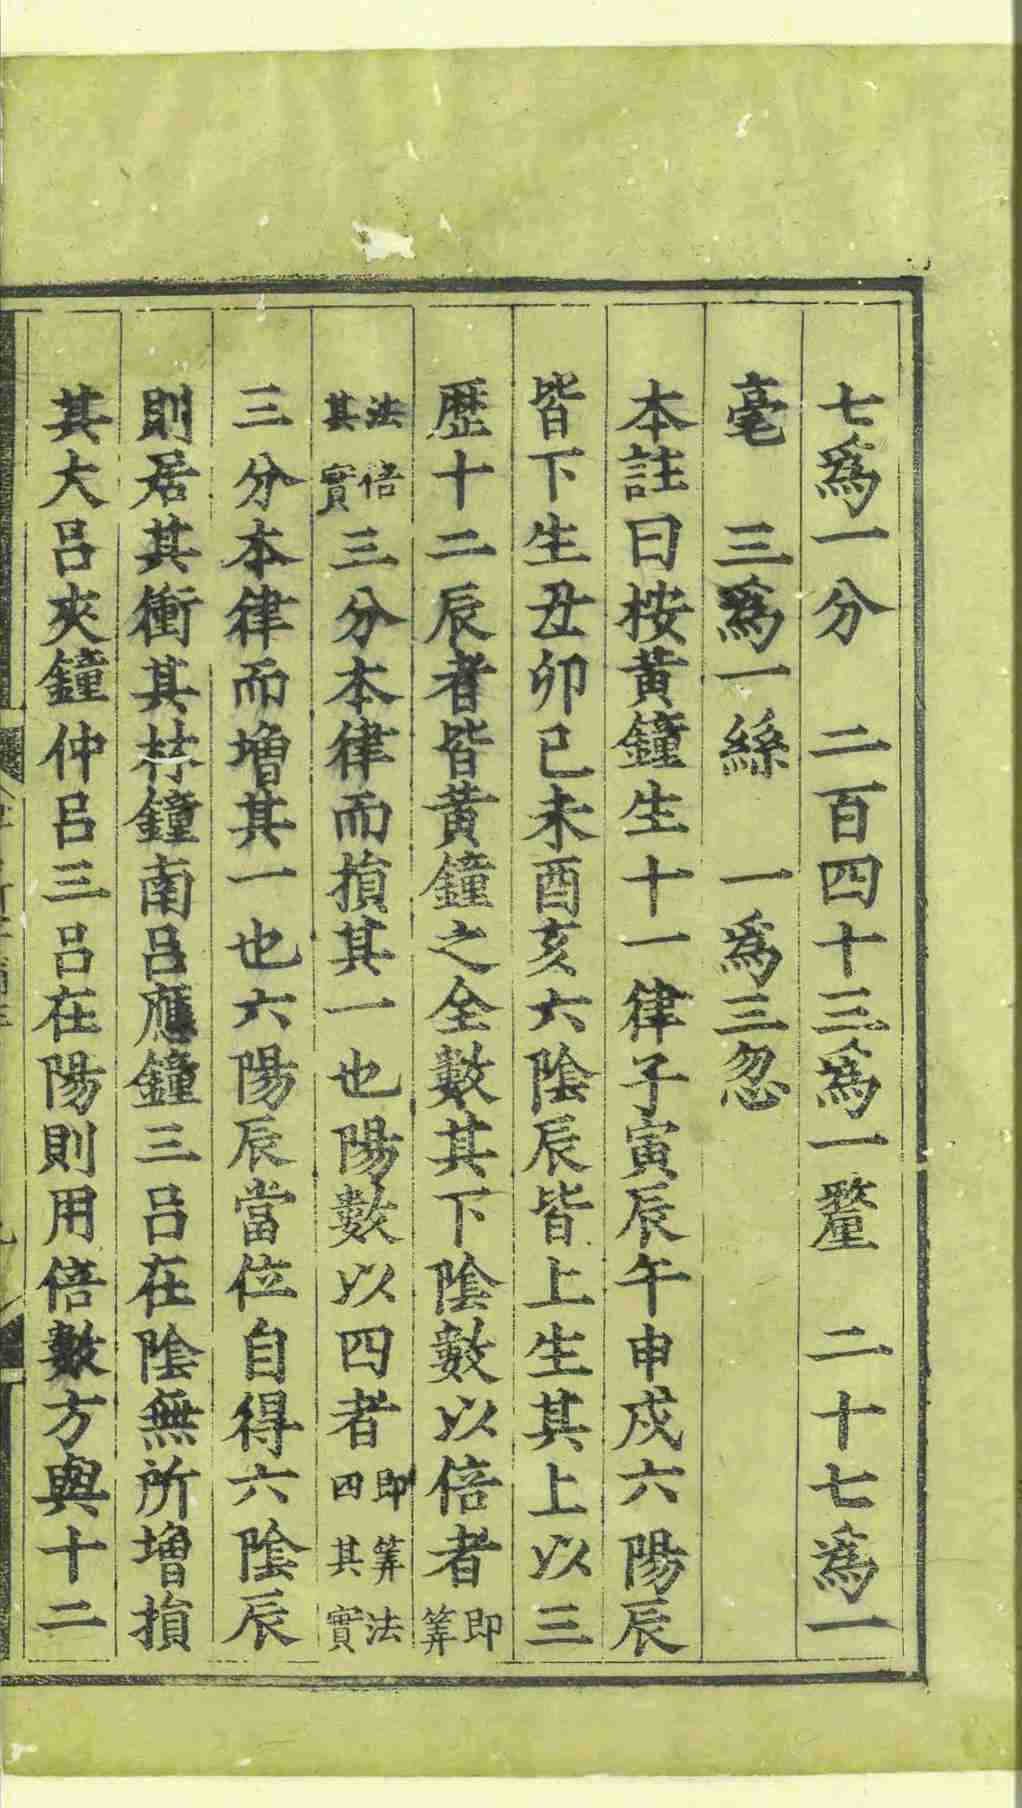 七爲一分　二百四十三爲一釐　二十七爲一
毫　三爲一絲　一爲三忽
本註曰桉黃鐘生十一律子寅辰午申戍六陽辰
皆下生丑卯巳未酉亥六陰辰皆上生其上以三
歷十二辰者皆黃鐘之全數其下陰數以倍者即筭
法倍其實三分本律而損其一也陽數以四者即筭法四其實
三分本律而增其一也六陽辰當位自得六陰辰
則居其衝其林鐘南呂應鐘三呂在陰無所增損
其大呂夾鐘仲呂三呂在陽則用倍數方與十二